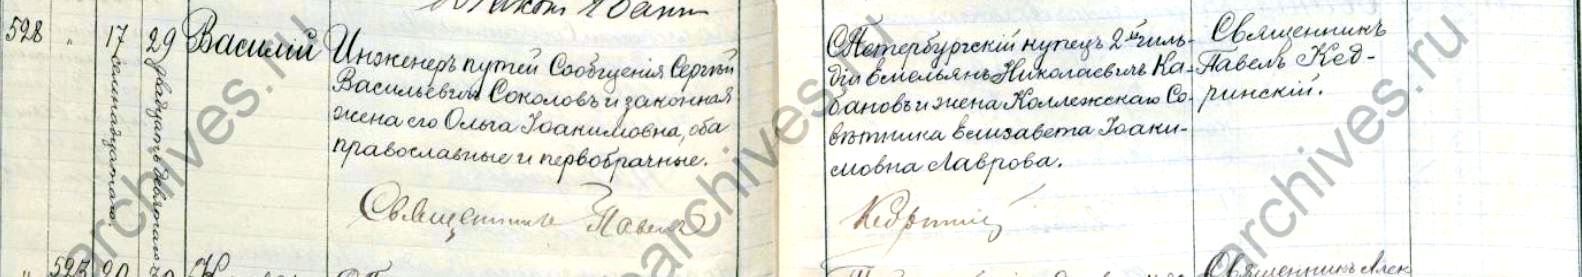 528 " 17 29 Василій
семнадцатаго
двадцать девятаго
Инженеръ путей Сообщенія Сергѣй
Васильевичъ Соколовъ и законная
жена его Ольга Іоакимовна, оба
православные и первобрачные.
Священникъ Павелъ
СПетербургскій купецъ 2ой гиль-
діи Емельянъ Николаевичъ Ка-
бановъ и жена Коллежскаго Со-
вѣтника Елизавета Іоаки-
мовна Лаврова.
Кедринскій
Священникъ
Павелъ Кед-
ринскій.
527
Священникъ Алек
archives.ru
archives.ru
archives.ru